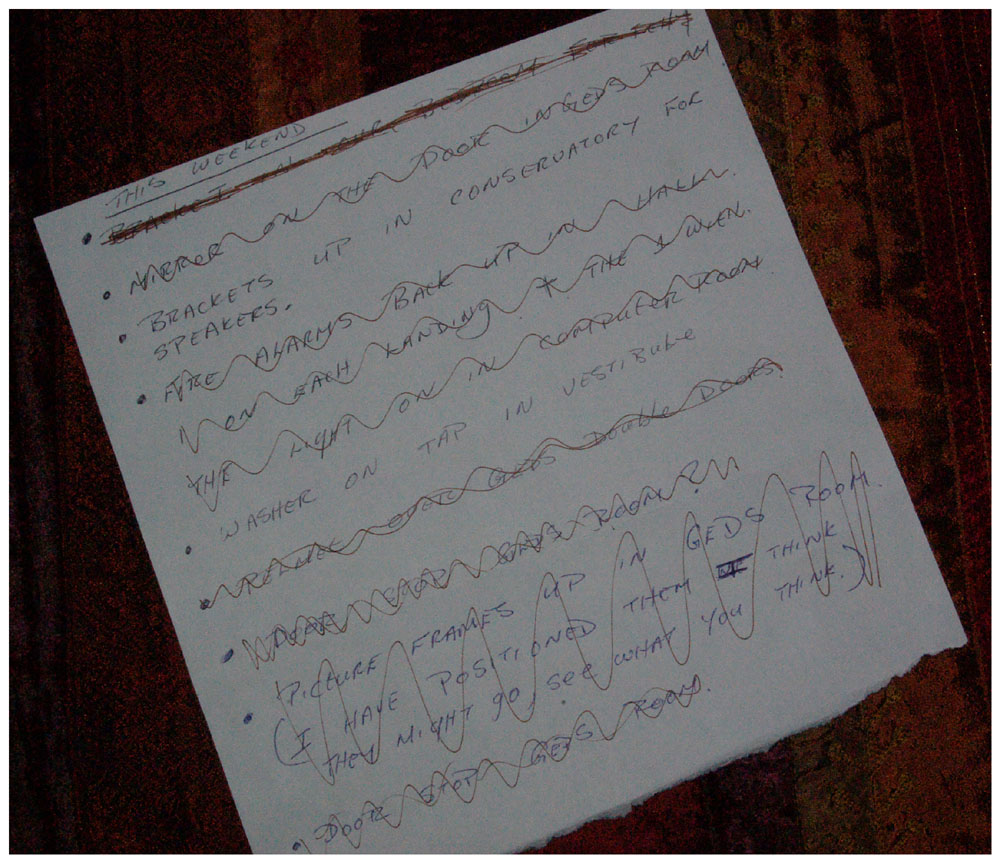 THIS WEEKEND
BRACKET IN BEDROOM FOR
MIRROR ON THE DOOR IN GEDS ROOM
BRACKETS UP IN CONSERVATORY FOR
SPEAKERS.
FIRE ALARMS BACK UP IN HALL.
1 ON EACH LANDING + THE 1 WHEN.
THE LIGHT ON IN COMPUTER ROOM.
WASHER ON TAP IN VESTIBULE
OVER GEDS DOUBLE DOORS.
DOOR GEDS ROOM?
PICTURE FRAMES UP IN GEDS ROOM.
(I HAVE POSITIONED THEM THINK
THEY MIGHT GO, SEE WHAT YOU THINK.)
DOOR STOP GEDS ROOM.